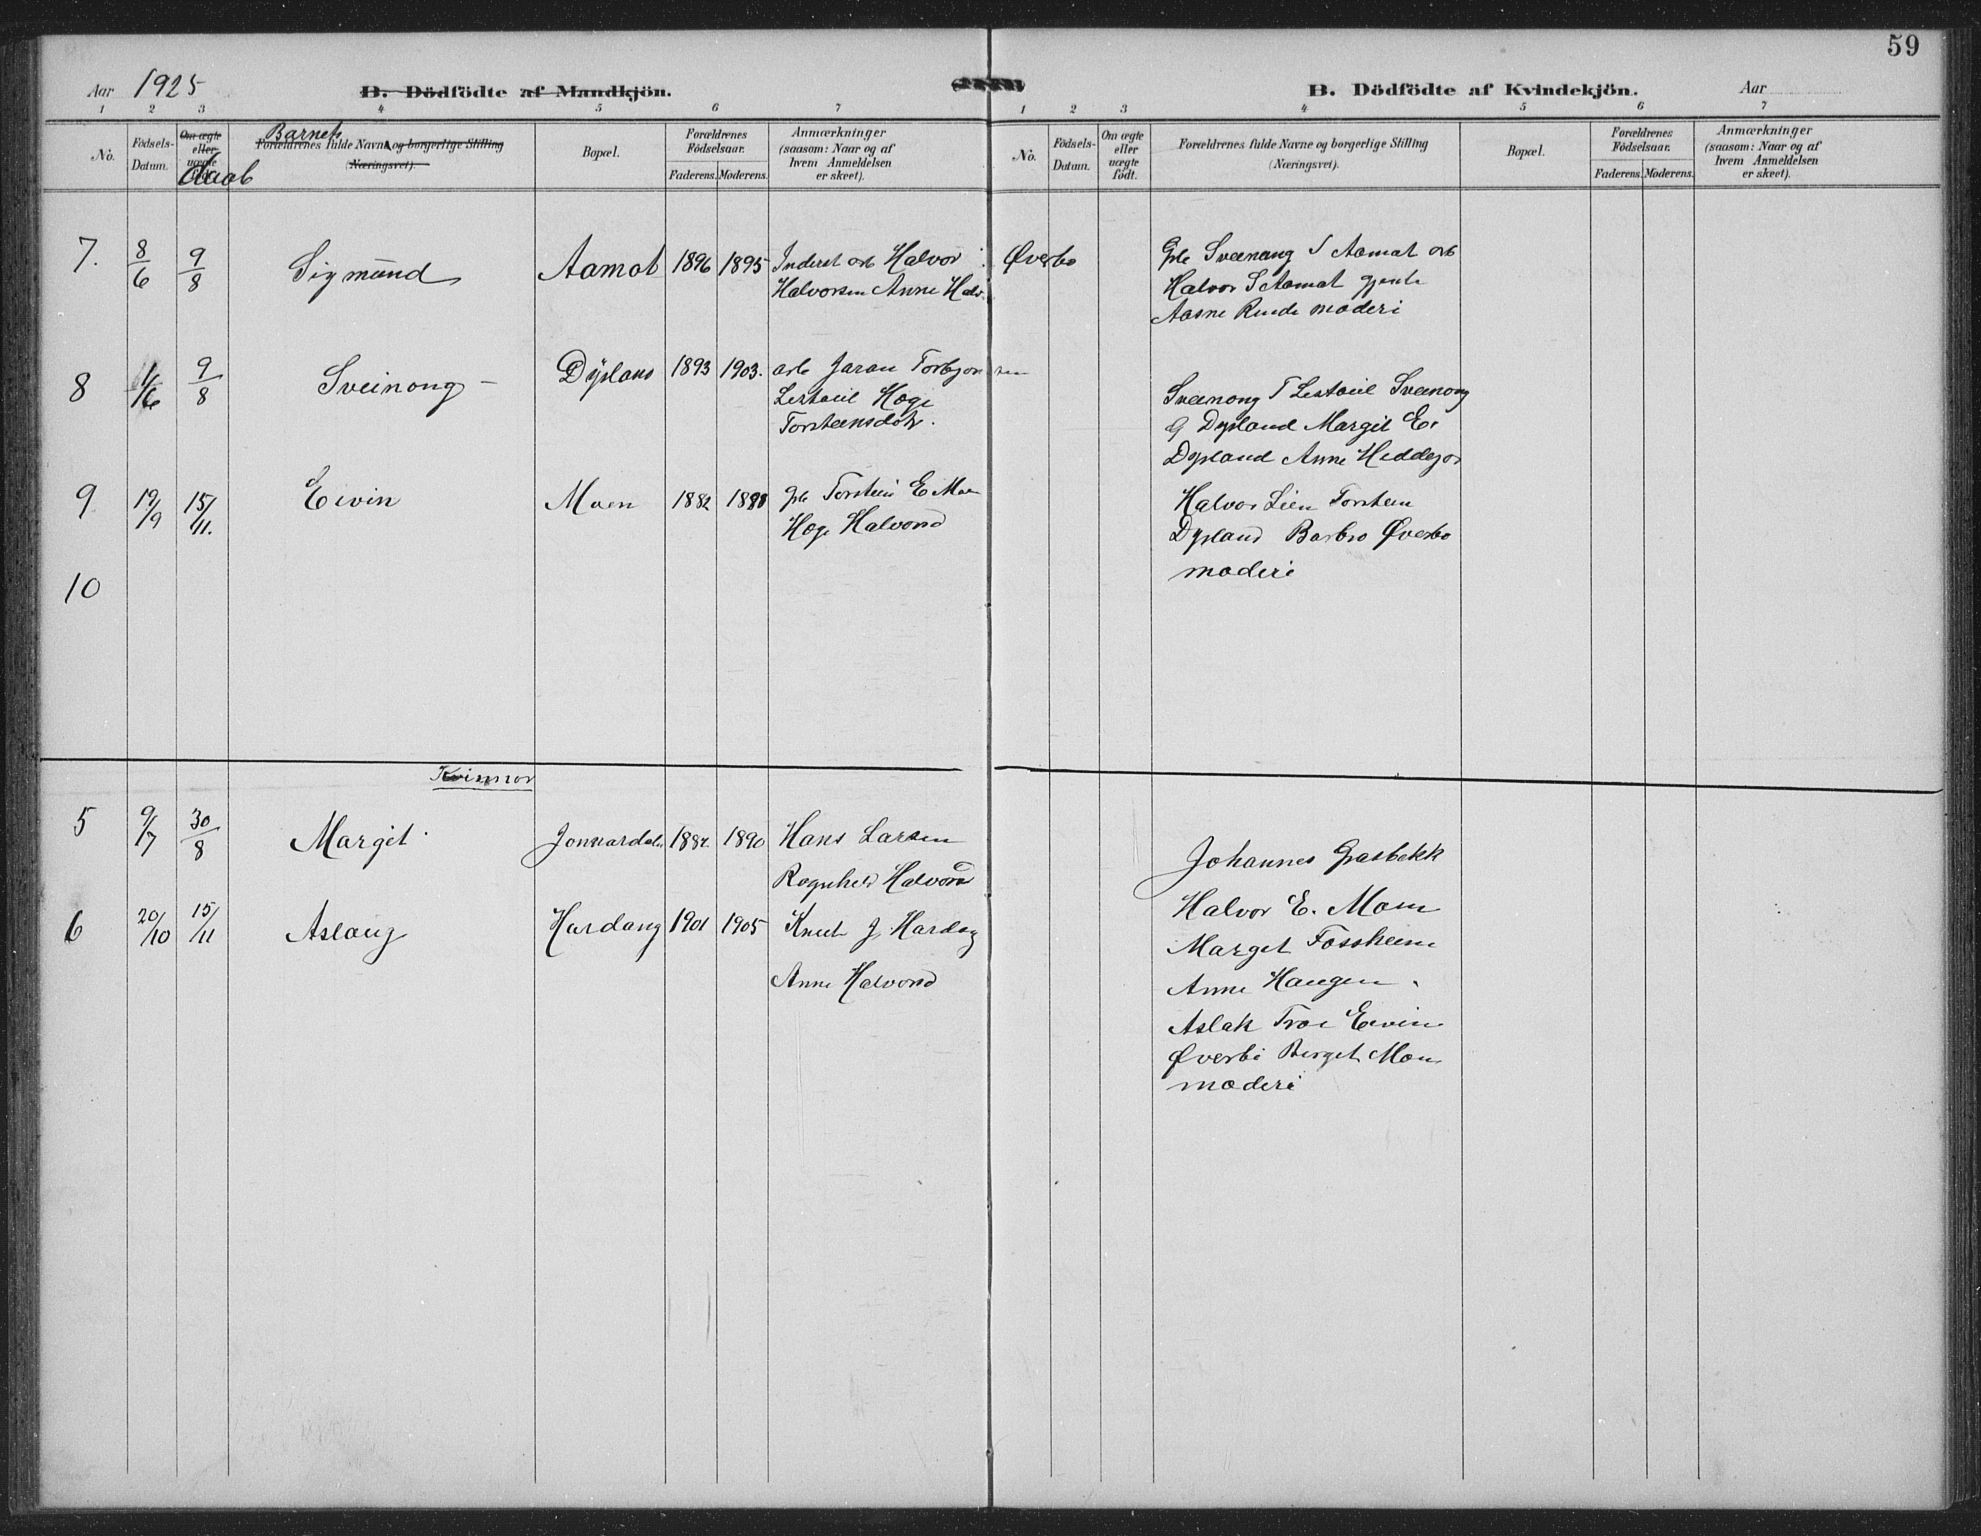 59
Aar 1925
B. Dödfödte af Mandkjön.
B. Dödfödte af Kvindekjön.
Aar
1 2 3 4 5 6 7
1 2 3 4 5 6 7
No.
Födsels-Datum.
Om ægte eller uægte
Daab
Barnets
Forældrenes fulde Navne og borgerlige Stilling
(Næringsvei).
Bopæl.
Forældrenes Födselsaar.
Faderens. Moderens.
Anmærkninger
(saasom: Naar og af
hvem Anmeldelsen
er skeet).
No.
Födsels-Datum.
Om ægte eller uægte födt.
Forældrenes fulde Navne og borgerlige Stilling
(Næringsvei).
Bopæl.
Forældrenes Födselsaar.
Faderens. Moderens.
Anmærkninger
(saasom: Naar og af
hvem Anmeldelsen
er skeet).
7. 8/6 9/8 Sigmund Aamot 1896 1895 Inderst arb Halvor Øverbø
Halvorsen Anne Halv.
Gbr Sveinang S Aamot arb
Halvor S Aamot gjente
Aasne Rue moderi
8 9/8 Sveinong – Dyrland 1893 1903. arb Jaran Torbjørnsen
Lestoul Hæge
Torsteinsdotr.
Sveinong T Lestoul Sveinong
G Dyrland Margit E.
Dyrland Anne Heddejor
9 19/9 15/11. Eivin Moen 1882 1888 gbr Torstein E Moen
Hæge Halvorsd
Halvor Lien Torstein
Dyrland Barbro Øverbø
moderi
10
Kvinnor
5 9/7 30/8 Margit. Jonnardalen 1882 1890 Hans Larsen
Ragnhild Halvorsd
Johannes Grasbekk
Halvor E. Moen
Marget Fossheim
Anne Haugen.
6 20/10 15/11 Aslaug Hardang 1901 1905 Knut J. Hardang
Anne Halvorsd
Aslak Troe Eivin
Øverbø Berget Moen
moderi